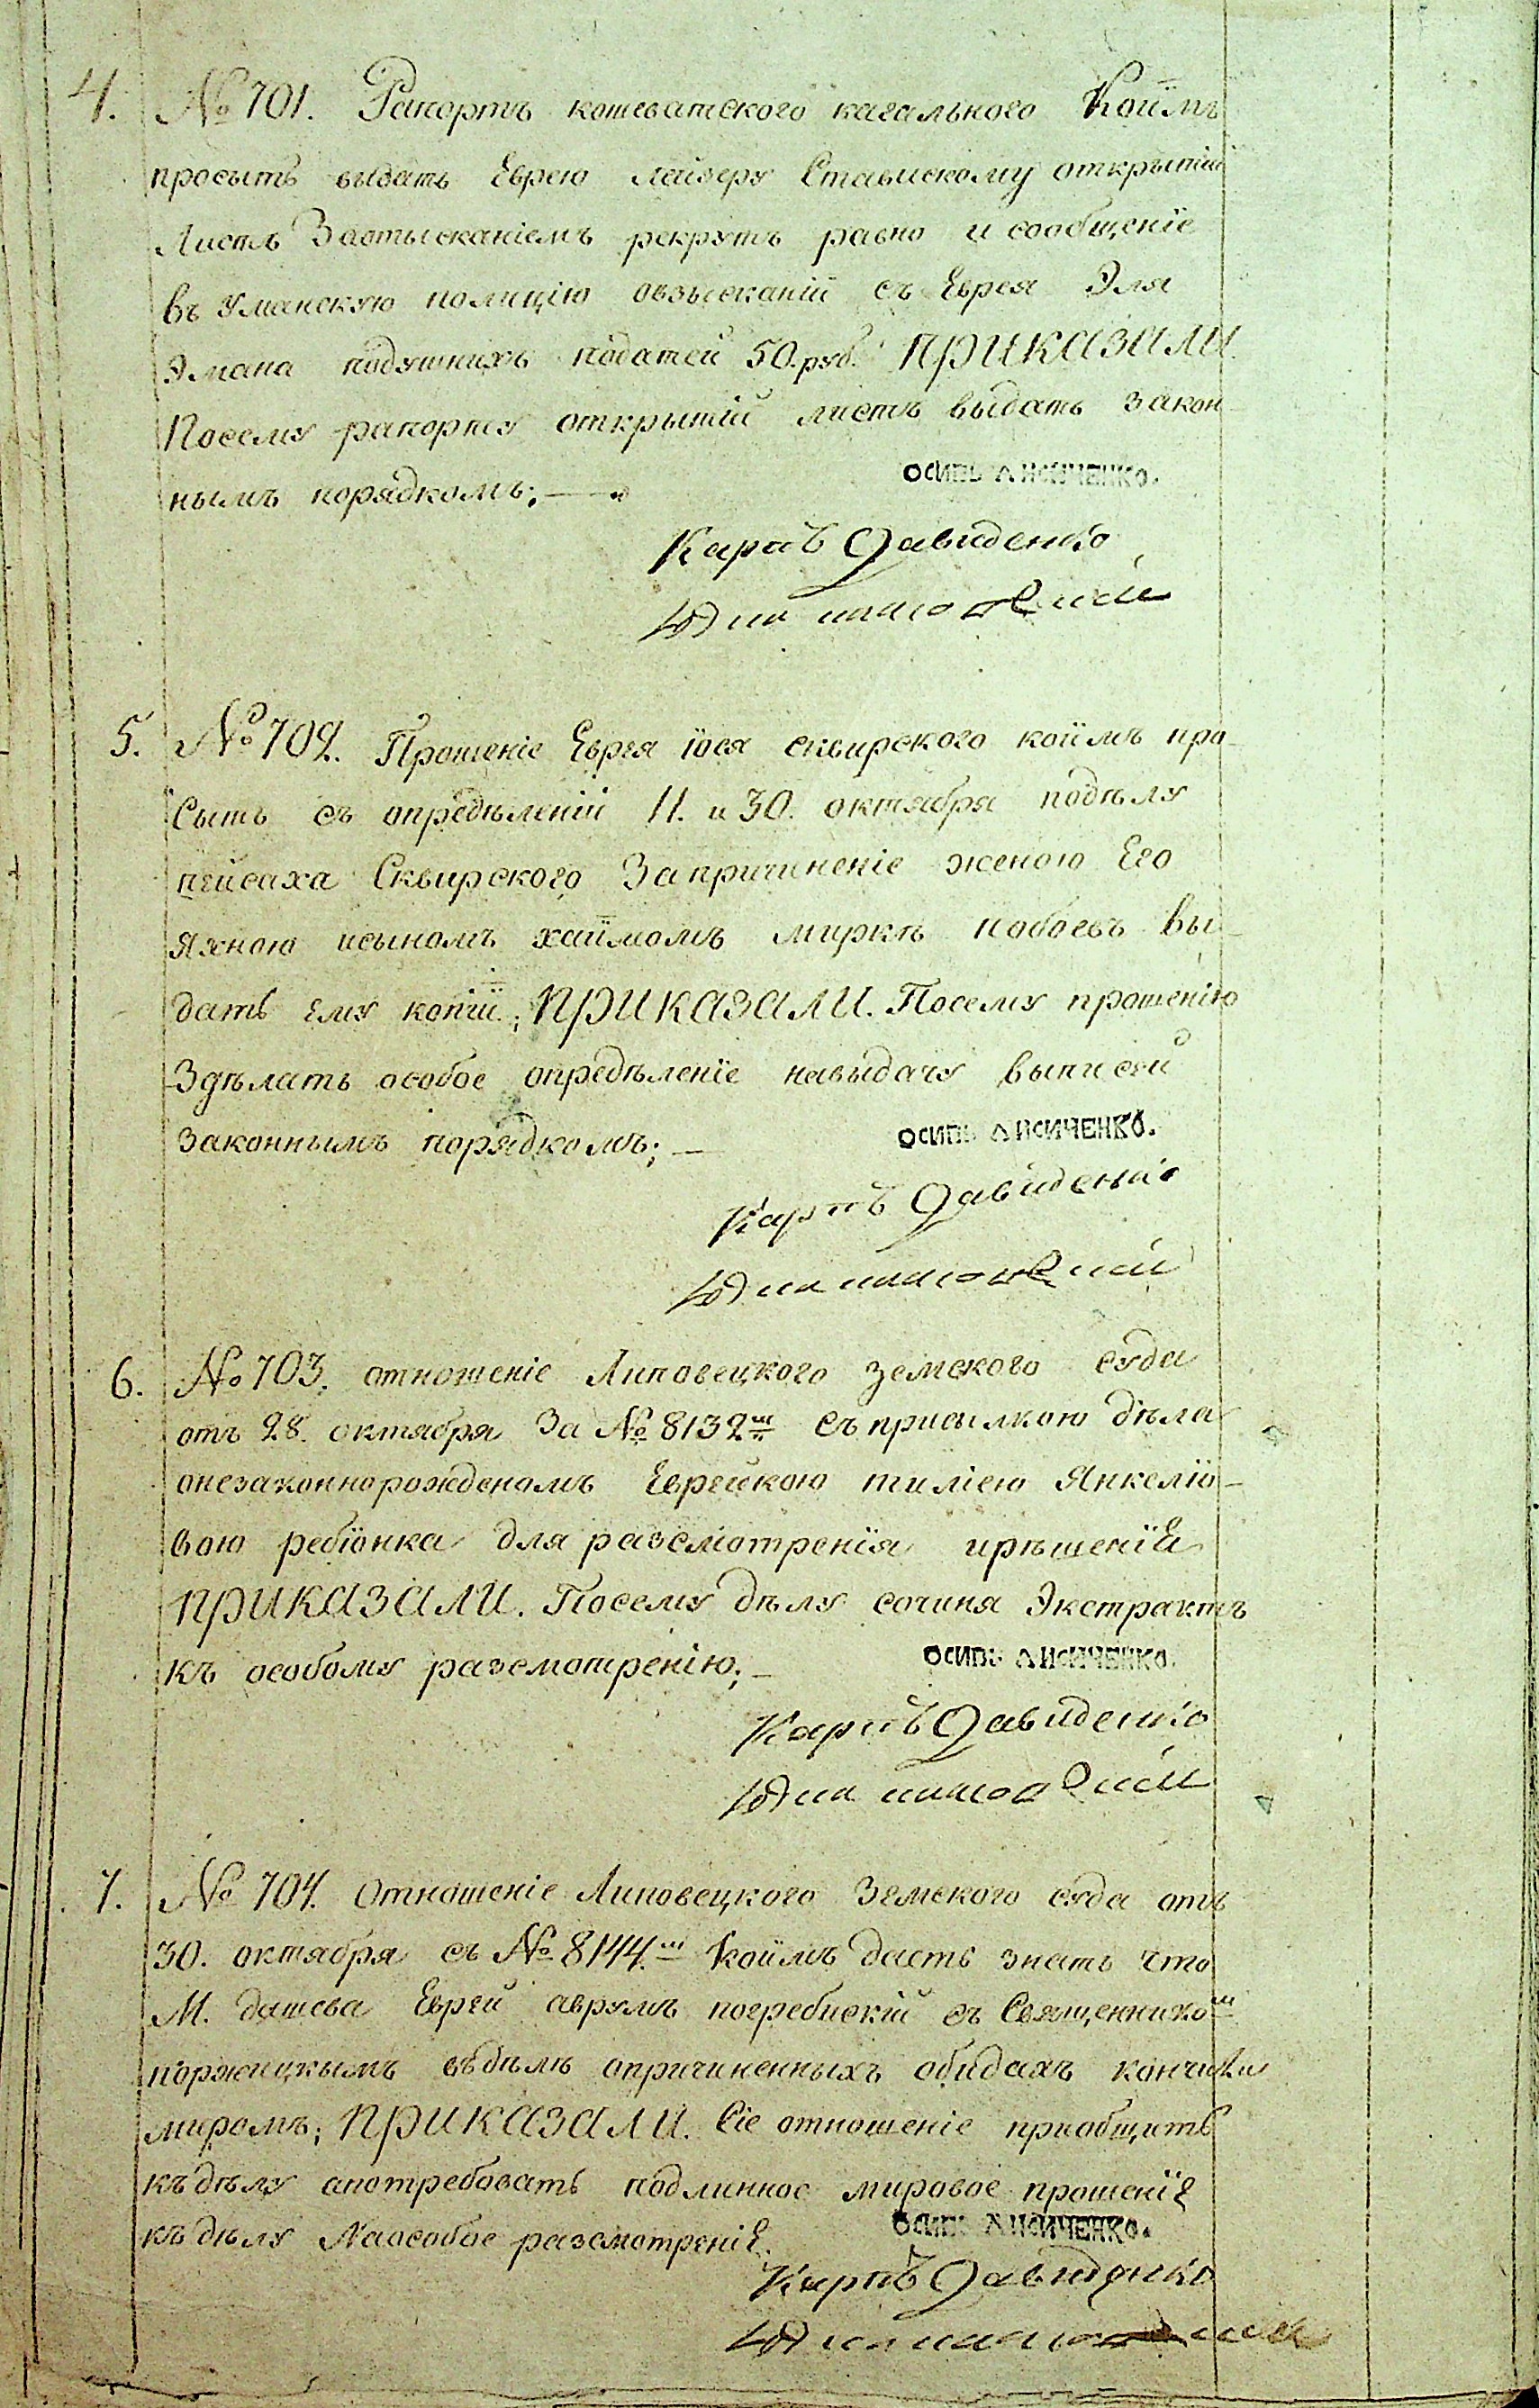 4. № 701. Рапортъ кошеватского кагального Коимъ
просытъ выдать Еврею лейзеру Ставискому открытий
Листъ Заотысканіемъ рекрутъ равно и сообщеніе
въ Уманскую полицію овзысканій съ Еврея Эля
Эмана подушнихъ податей 50. руб. ПРИКАЗАЛИ
Посему рапорту открытій листъ выдать закон-
нымъ порядкомъ;—
ОСИПЪ ЛИСИЧЕНКО.
Карпъ Давиденко
5. № 702. Прошеніе Еврея іося сквирского коимъ про-
сытъ съ опредѣленій 11. и 30. октября подѣлу
пейсаха Сквирского Запричиненіе женою Его
Яхною исыномъ хаимомъ миркѣ побоевъ вы-
дать ему копіи; ПРИКАЗАЛИ. Посему прошенію
Здѣлать особое опредѣленіе навыдачу выписей
законнымъ порядкомъ;—
ОСИПЪ ЛИСИЧЕНКО.
Карпъ Давиденко
6. № 703. отношеніе Липовецкого земского суда
отъ 28. октября За № 8132м съ присылкою дѣла
онезаконнорожденомъ Еврейкою тиліею Янкеліо-
вою ребіонка для разсмотренія ирѣшеній
ПРИКАЗАЛИ. Посему дѣлу сочиня Экстрактъ
къ особому разсмотренію;—
ОСИПЪ ЛИСИЧЕНКО.
Карпъ Давиденко
7. № 704. Отношеніе Липовецкого Земского суда отъ
30. октября съ № 8144.м коимъ даетъ знать что
М. дашева Еврей аврумъ погребискій съ Священником
поржицкымъ вѣдѣлѣ опричиненныхъ обидахъ кончили
миромъ; ПРИКАЗАЛИ. Сіе отношеніе приобщить
къ дѣлу апотребовать подлинное мировое прошеніе
къ дѣлу Наособое разсмотреніе.
ОСИПЪ ЛИСИЧЕНКО.
Карпъ Давиденко